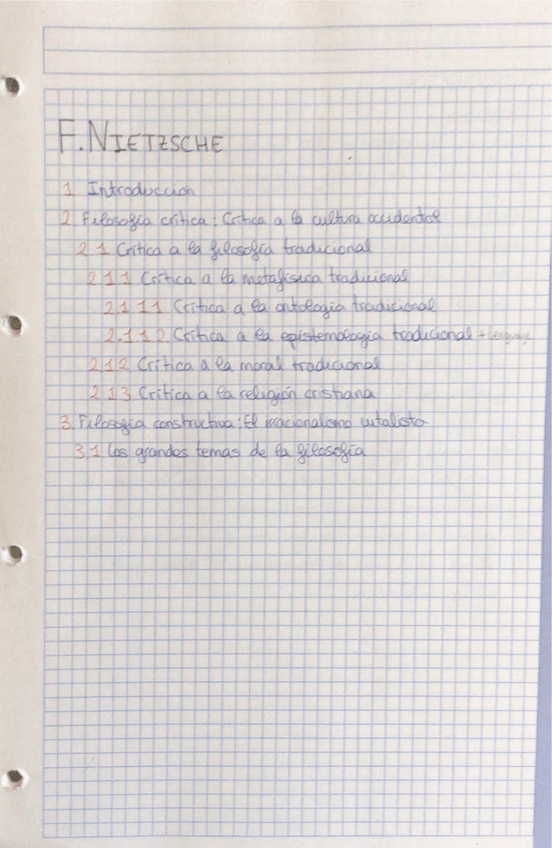 F. NIETZSCHE
1 Introducción
2. Filosofía crítica: Crítica a la cultura occidental
2.1 Crítica a la filosofía tradicional
2.1.1 Crítica a la metafísica tradicional
2.1.1.1 Crítica a la ontología tradicional
2.1.1.2. Crítica a la epistemología tradicional + lenguaje
2.1.2 Crítica a la moral tradicional
2.1.3 Crítica a la religión cristiana
3. Filosofía constructiva: El irracionalismo vitalista
3.1 Los grandes temas de la filosofía